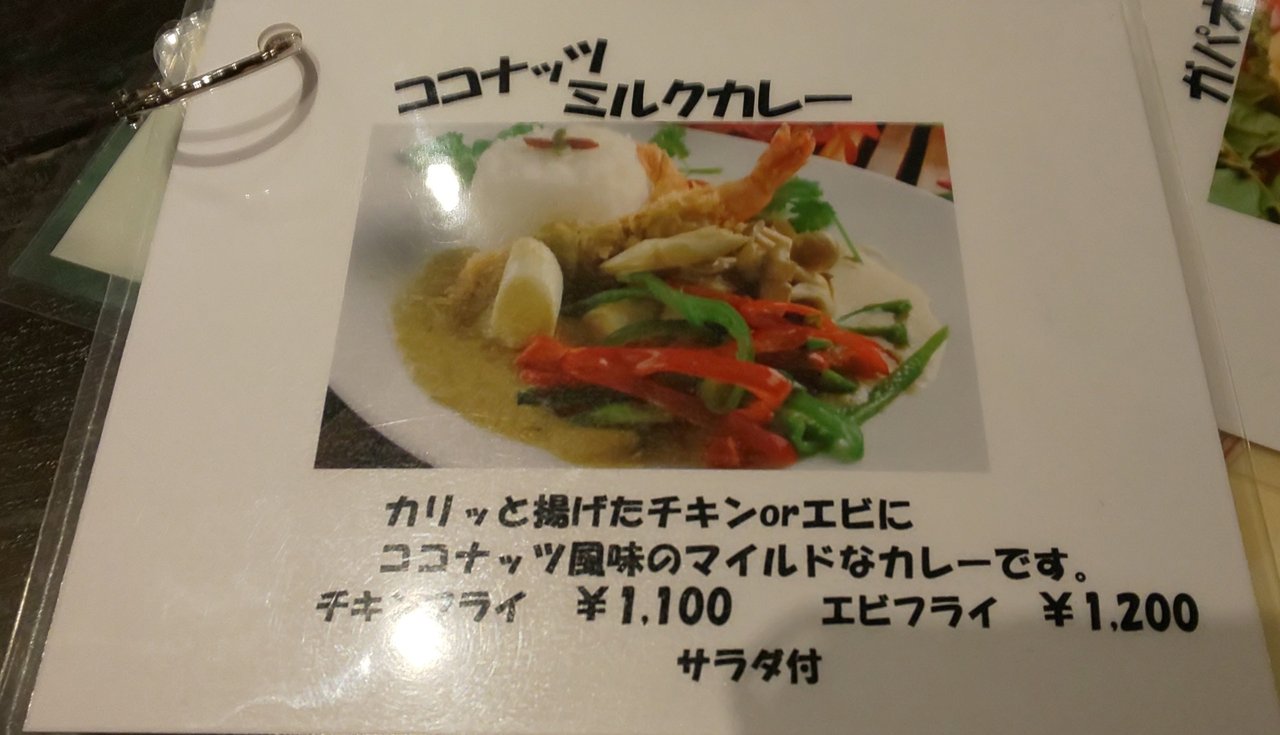 ココナッツ
ミルクカレー
カリッと揚げたチキンorエビに
ココナッツ風味のマイルドなカレーです。
チキンフライ ¥1,100 エビフライ ¥1,200
サラダ付
ガパオ